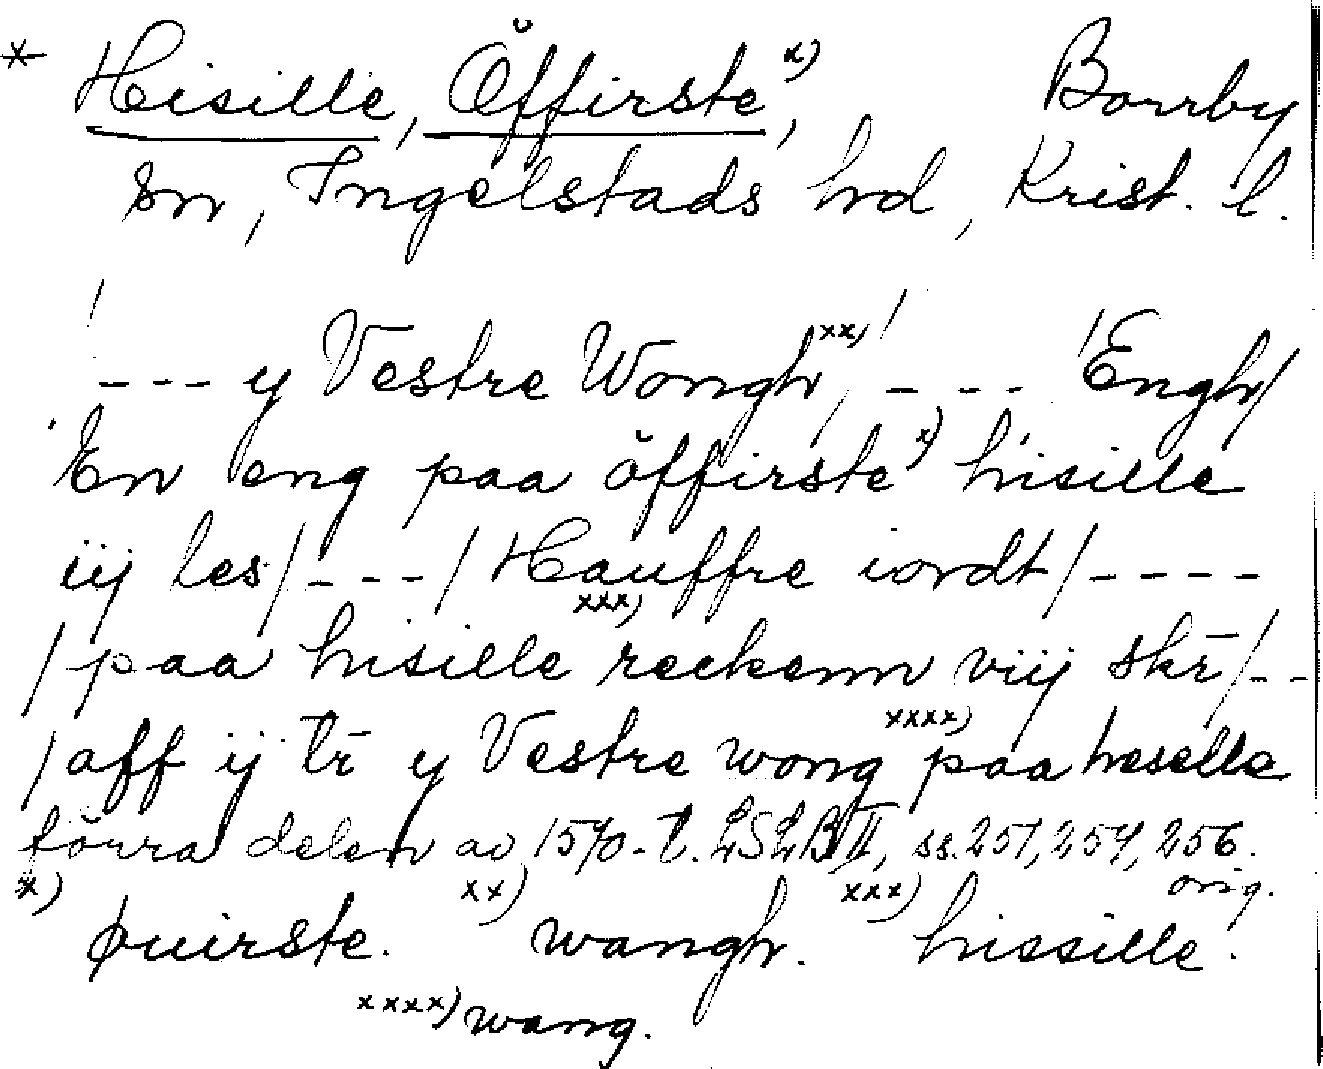 * Hisille, Öffirste,x) Borrby
sn, Ingelstads hd, Krist. l.
/--- y Vestre Wongh xx)/, /- - - - /Engh/
En eng paa öffirste x) hisille
iij les/ - - - / Hauffre iordt/ - - - -
/paa hisille xxx) reckenn viij skr̄/ - -
/aff ij tr̄ y Vestre wong xxxx) paa heselle
förra delen av 1570-t. LSLB II, ss. 251, 254, 256.
x) xx) xxx) orig.
øuirste. wangh. hissille.
xxxx) wang.